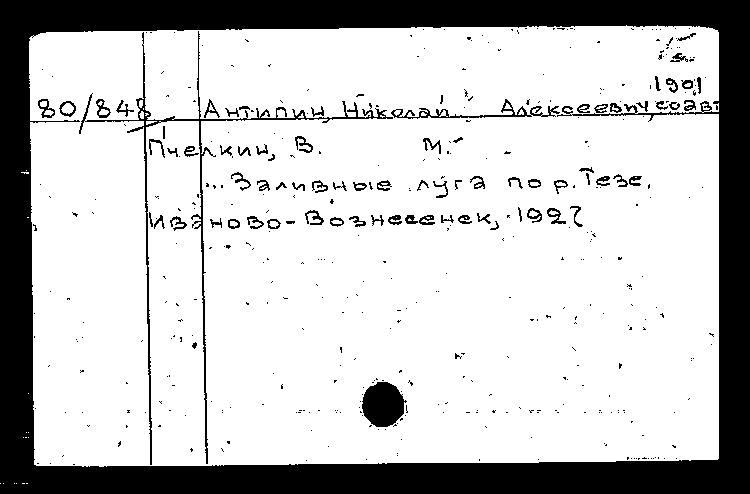 1901
80/848 Антипин, Николай Алексеевич, соавт
Пчелкин, В. М.
... Заливные луга по р. Тезе.
Иваново-Вознесенск, 1927